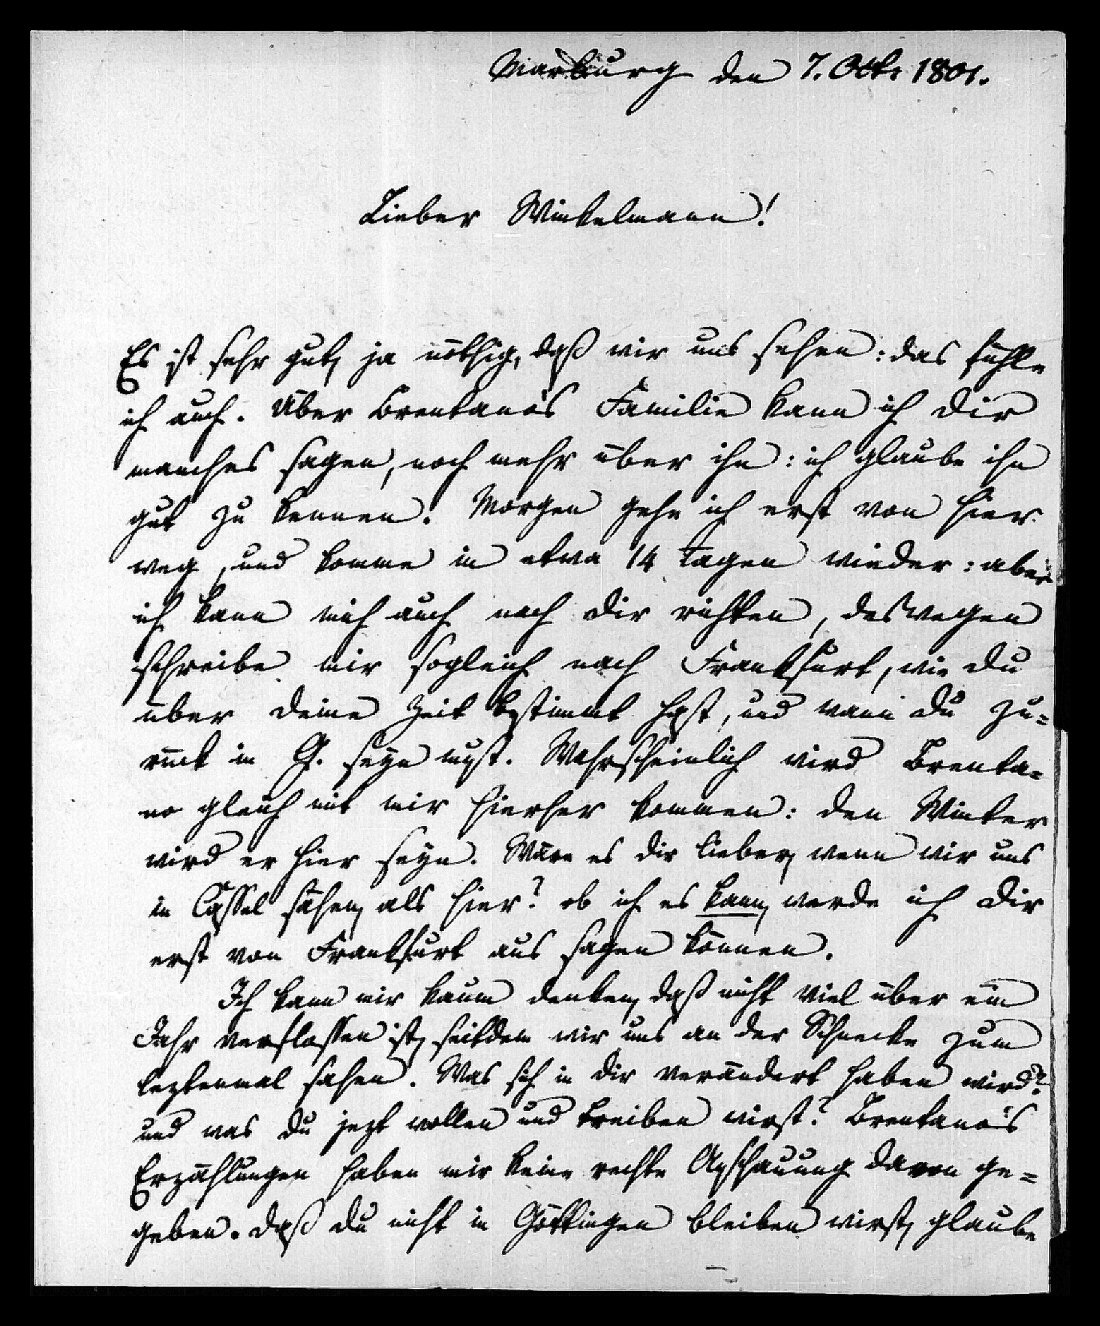 Marburg den 7. Octr 1801.
Lieber Winkelmann!
Es ist sehr gut, ja nöthig, daß wir uns sehen: das fühle
ich auch. Über Brentano's Familie kann ich dir
manches sagen, noch mehr über ihn: ich glaube ihn
gut zu kennen. Morgen gehe ich erst von hier
weg, und komme in etwa 14 Tagen wieder: aber
ich kann mich auch nach dir richten, deswegen
schreibe mir sogleich nach Frankfurt, wie du
über deine Zeit bestimmt hast, und wann du zu=
rück in G. seyn must. Wahrscheinlich wird Brenta=
no gleich mit mir hierher kommen: den Winter
wird er hier seyn. Wäre es dir lieber, wenn wir uns
in Cassel sähen, als hier? ob ich es kann, werde ich dir
erst von Frankfurt aus sagen können.
Ich kann mir kaum denken, daß nicht viel über ein
Jahr verflossen ist, seitdem wir uns an der Schnecke zum
leztenmal sahen. Was sich in dir verändert haben wird?
und was du jezt wollen und treiben wirst? Brentano's
Erzählungen haben mir keine rechte Anschauung davon ge=
geben. daß du nicht in Göttingen bleiben wirst, glaube